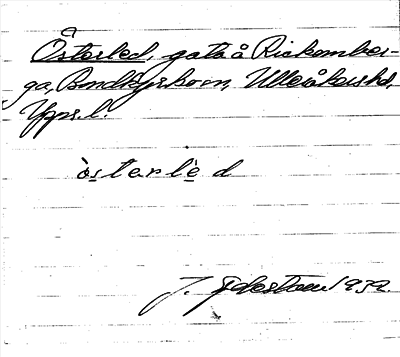 Österled, gata å Rickomber-
ga, Bondkyrko sn, Ulleråkers hd,
Upps. l.
òsterlè d
J. 1932.